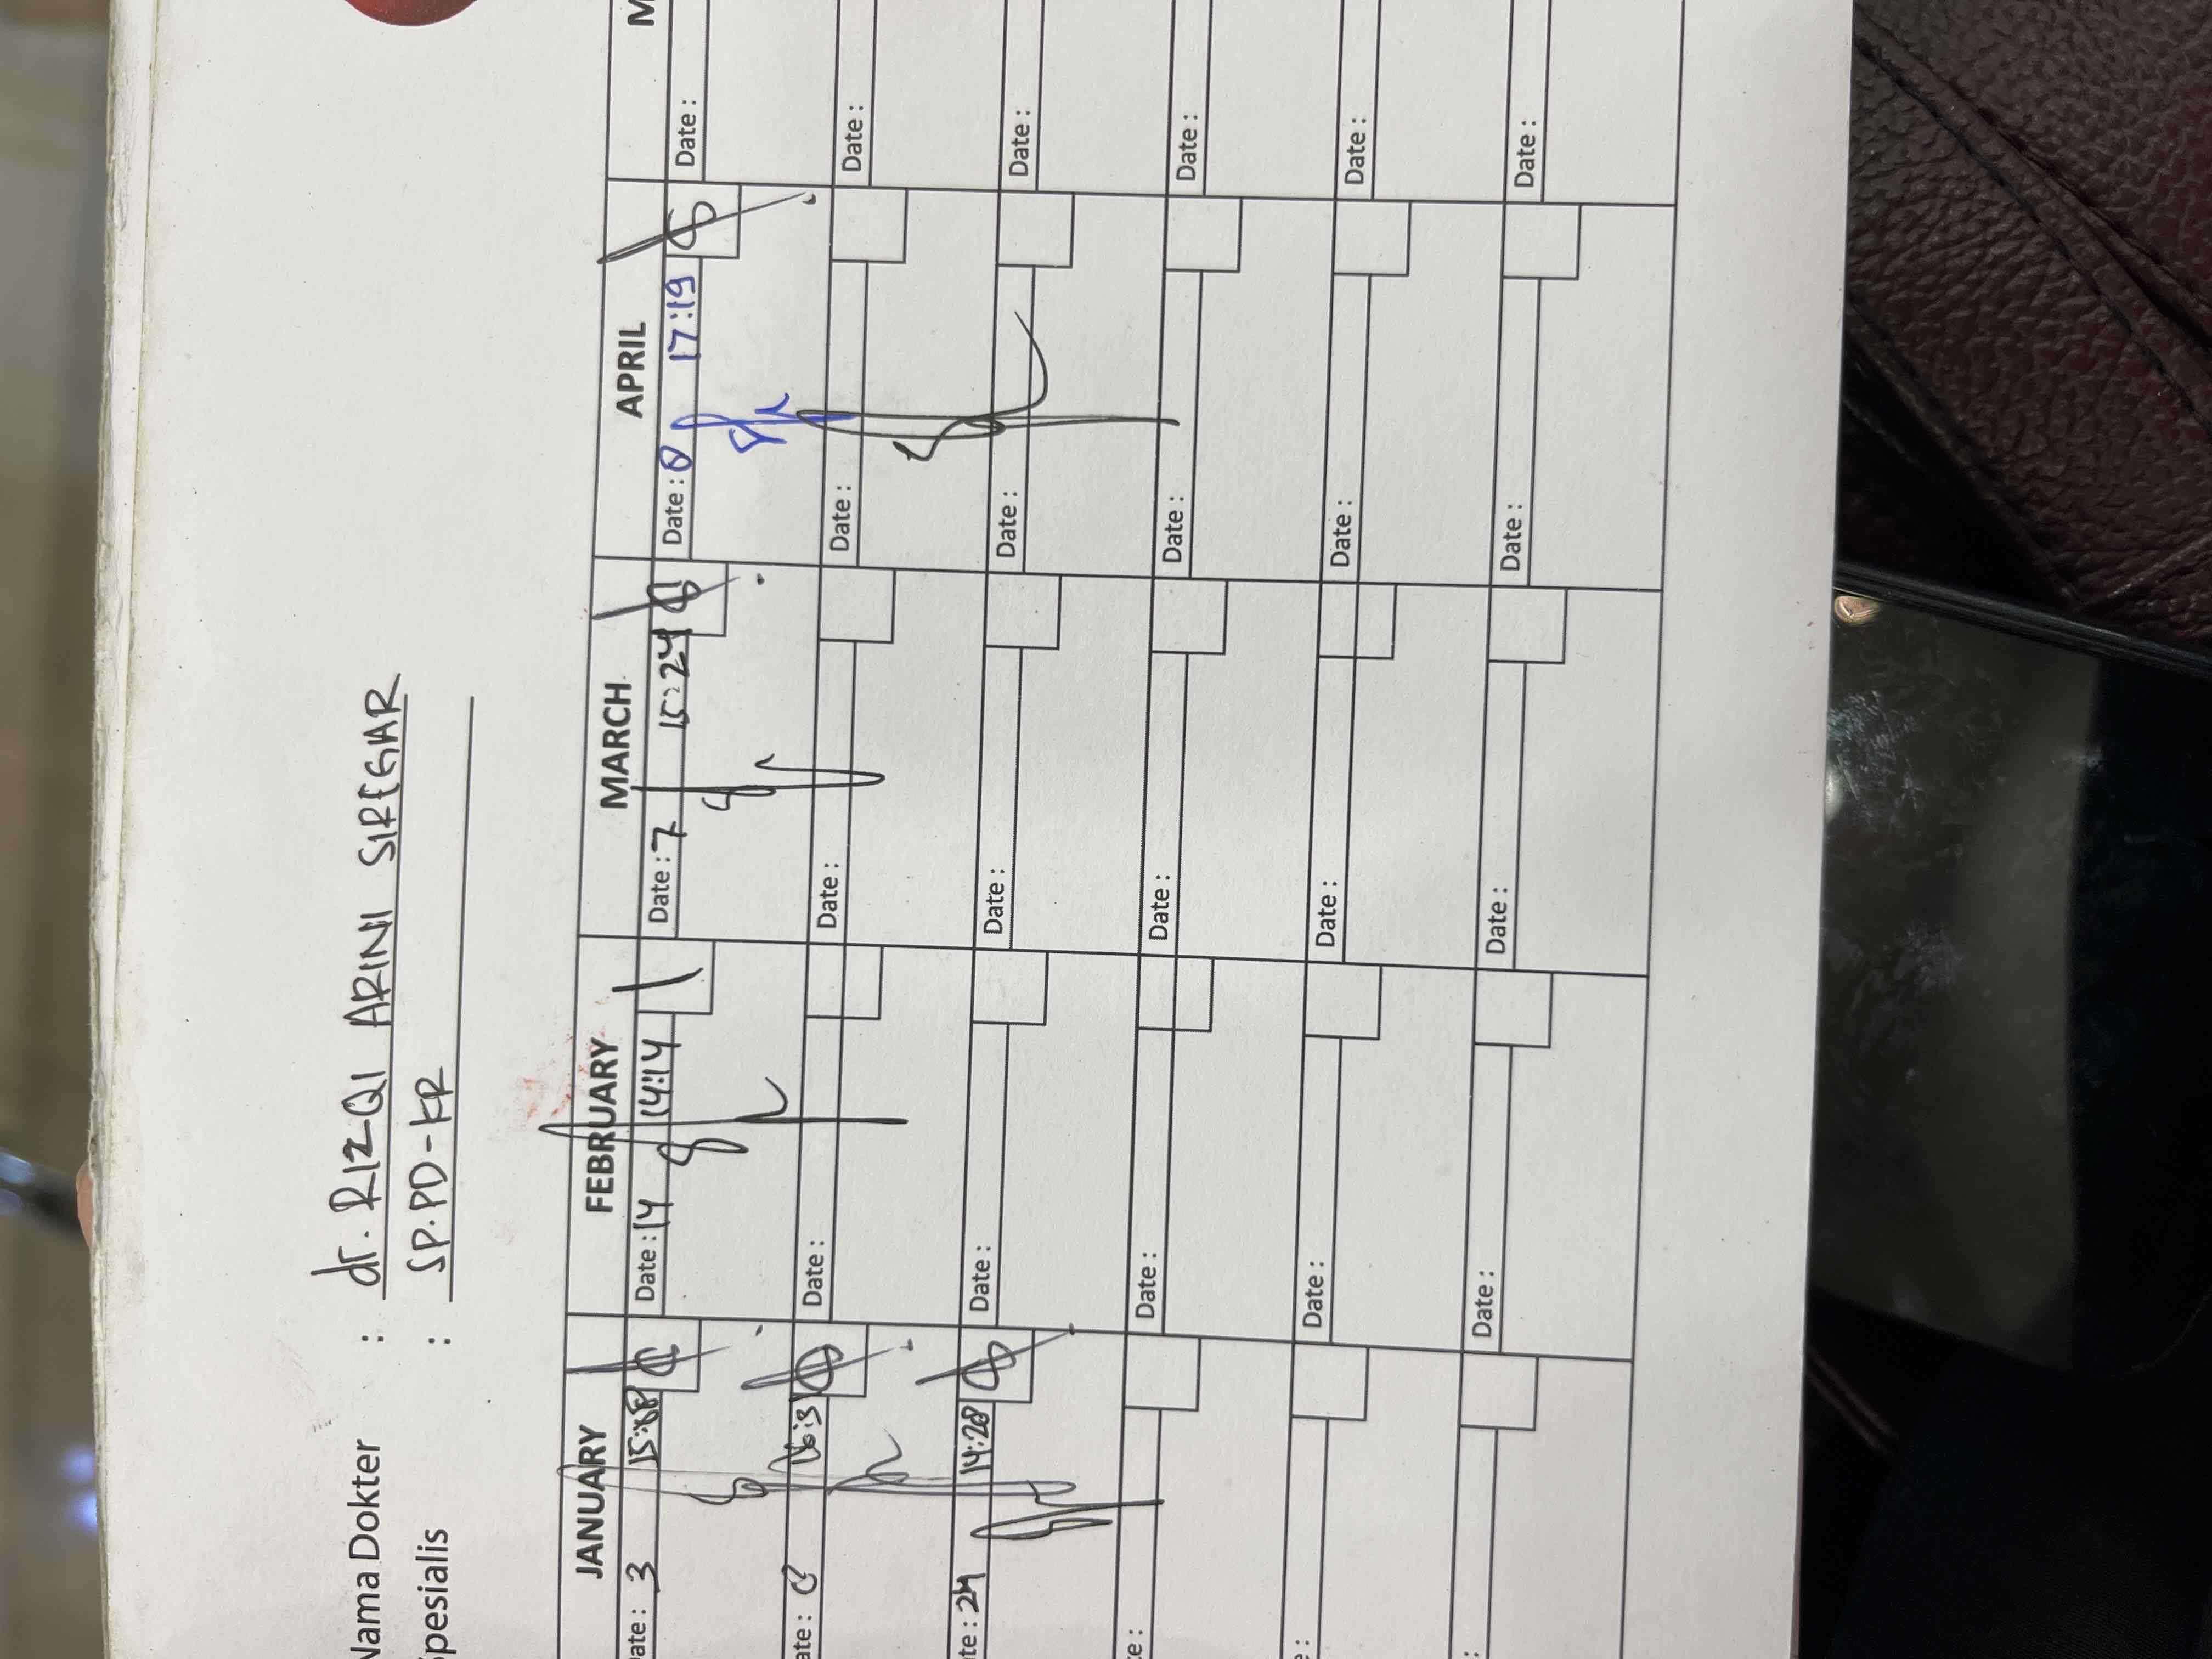 Nama Dokter : dr. RIZQI ARINI SIREGAR
Spesialis : SP.PD-KR
JANUARY FEBRUARY MARCH APRIL M
Date : 3 Date : 14 14:14 Date : 7 15:24 Date : 8 17:19 Date :
Date : Date : Date : Date : Date :
Date : 24 14:28 Date : Date : Date : Date :
Date : Date : Date : Date : Date :
Date : Date : Date : Date : Date :
Date : Date : Date : Date :